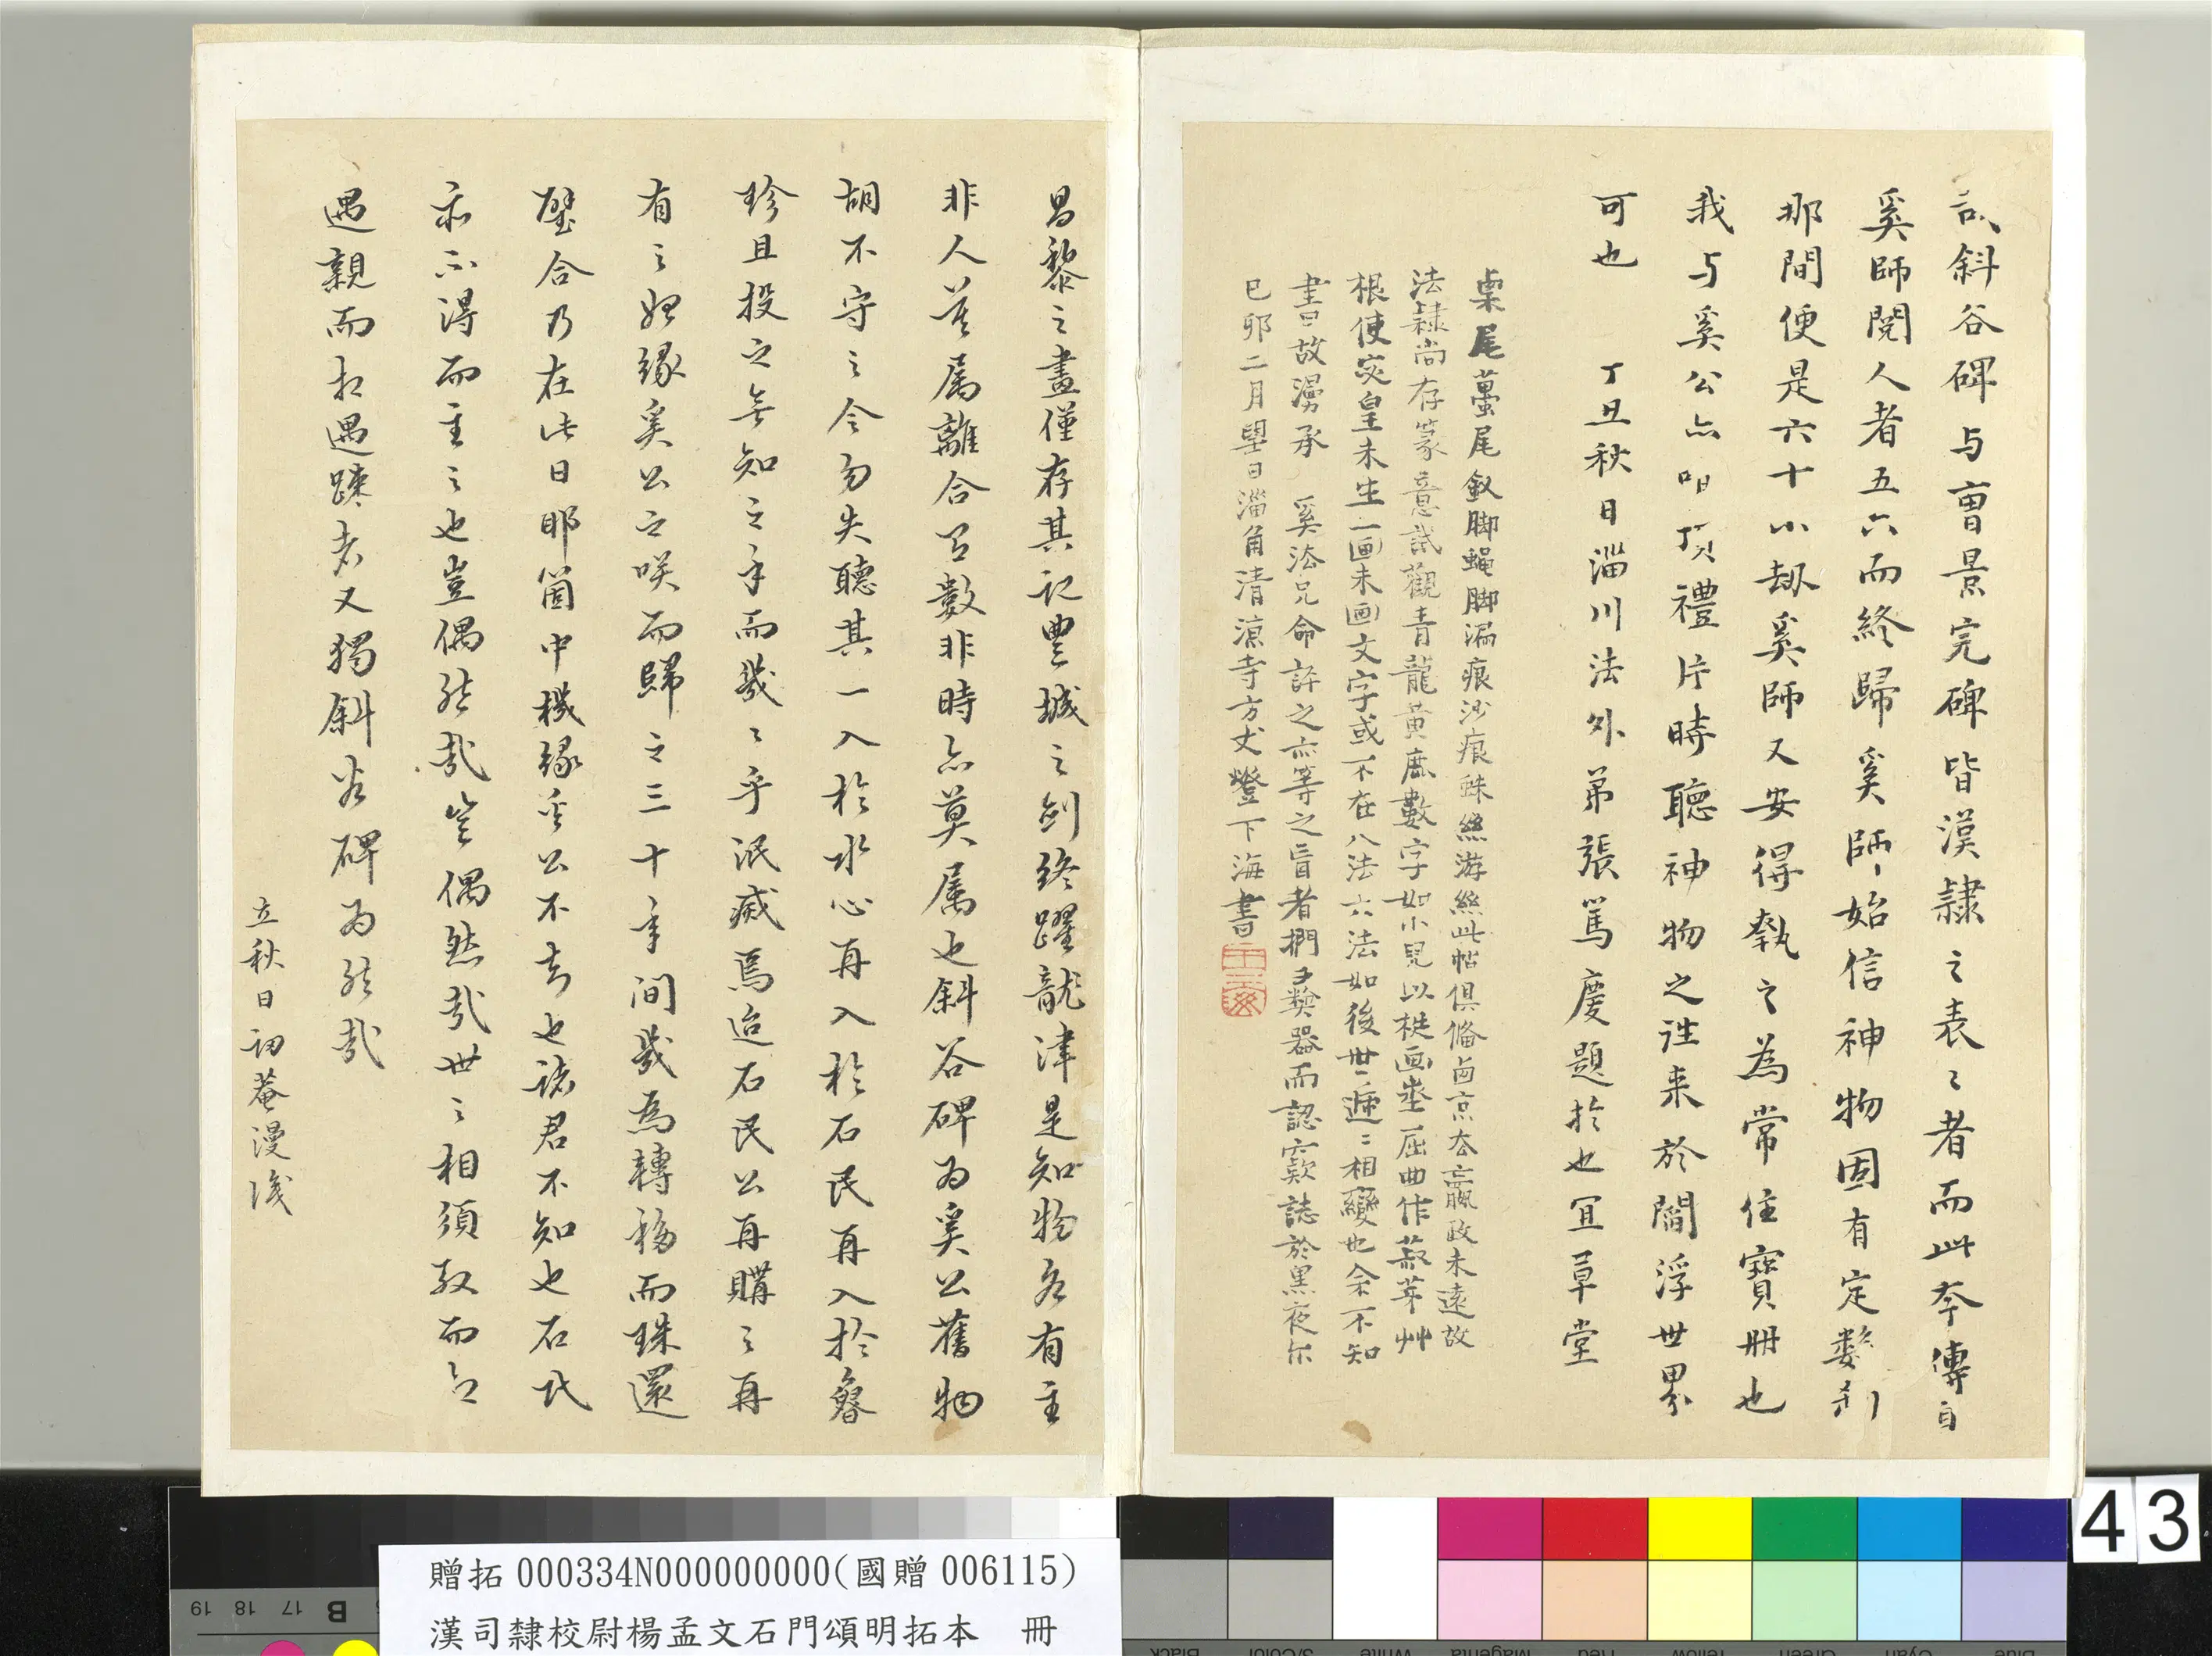 斜谷碑与曹景完碑皆漢隸之表々者而此夲傳自
奚師閱人者五六而終歸奚師始信神物固有定數刹
那間便是六十小劫奚師又安得執之為常住寶冊也
我与奚公亦咱頂禮片時聽神物之往来於閻浮世界
可也　丁丑秋日淄川法外弟張篤慶題於也宜草堂
㮚尾蠆尾釵脚蝇脚漏痕沙痕蛛絲游絲此帖俱俻
京去嬴政未遠故
法隸尚存篆意試觀青龍黄鹿數字如小兒以梃画
屈曲作
根使
皇未生一画未画文字或不在八法六法如後世遞〻相變也余不知
書曰故漫承　奚法兄命許之亦等之盲者捫
器而認窾誌於黑夜尔
已卯二月望日淄角清涼寺方丈燈下海書
昌黎之畫僅存其記豐城之劍終躍龍津是知物各有主
非人莫属離合有數非時亦莫属也斜谷碑为奚公舊物
胡不守之令勿失聽其一入於水心再入於石民再入於
珍且投之無知之手而幾々乎泯滅焉迨石民公再購之再
有之始緣奚公之咲而歸之三十年间幾為轉移而珠還
璧合乃在此日耶箇中機緣
公不言也諸君不知也石氏
亦不得而主之也豈偶然哉豈偶然哉世之相須殷而
遇親而相遇踈者又獨斜谷碑为然哉
立秋日訒菴漫識
43
贈拓000334N000000000(國贈006115)
漢司隸校尉楊孟文石門頌明拓本　冊
19 18 17 B